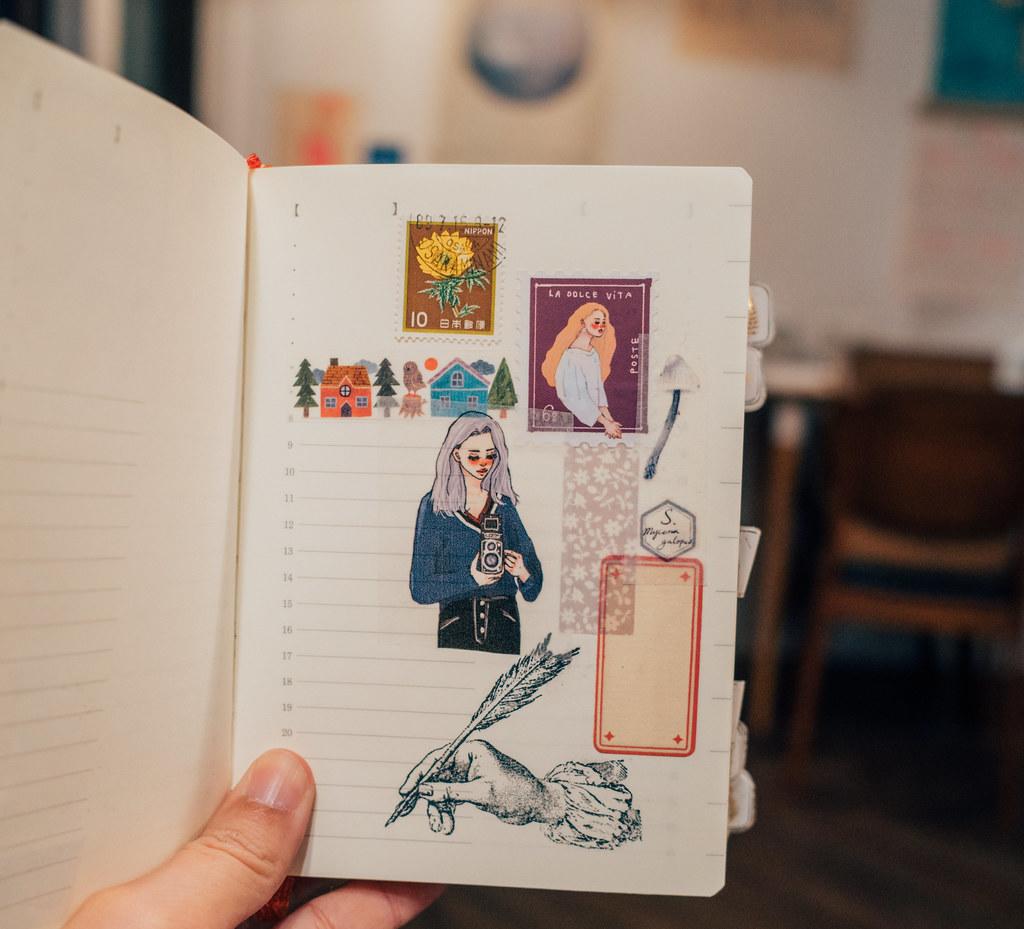 NIPPON
10 日本郵便
LA DOLCE VITA
POSTE
9
10
11
12
13
14
15
16
17
18
19
20
S.
Mycena
galopus